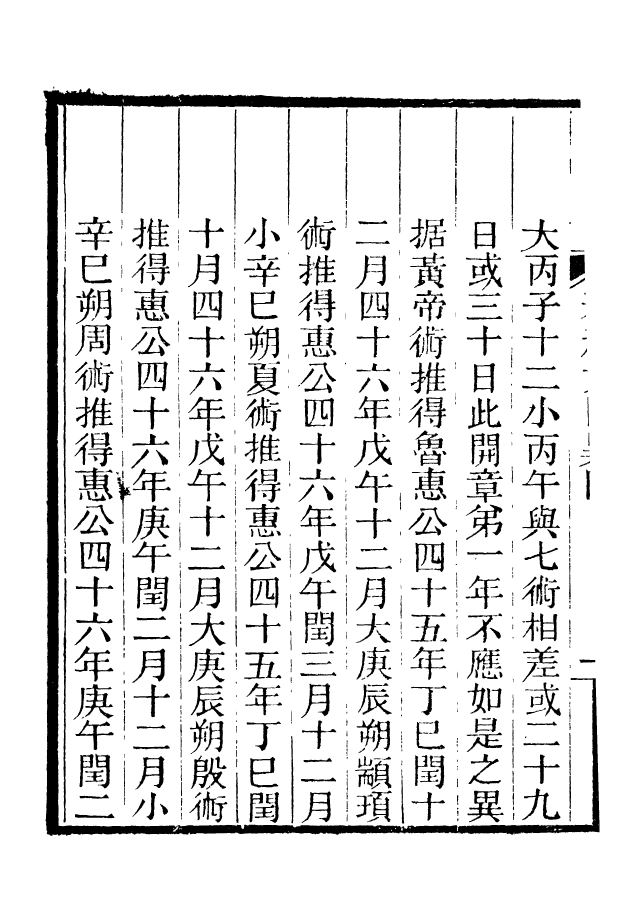 大丙子十二小丙午與七術相差或二十九
日或三十日此開章弟一年不應如是之異
据黃帝術推得魯惠公四十五年丁巳閏十
二月四十六年戊午十二月大庚辰朔顓頊
術推得惠公四十六年戊午閏三月十二月
小辛巳朔夏術推得惠公四十五年丁巳閏
十月四十六年戊午十二月大庚辰朔殷術
推得惠公四十六年庚午閏二月十二月小
辛巳朔周術推得惠公四十六年庚午閏二